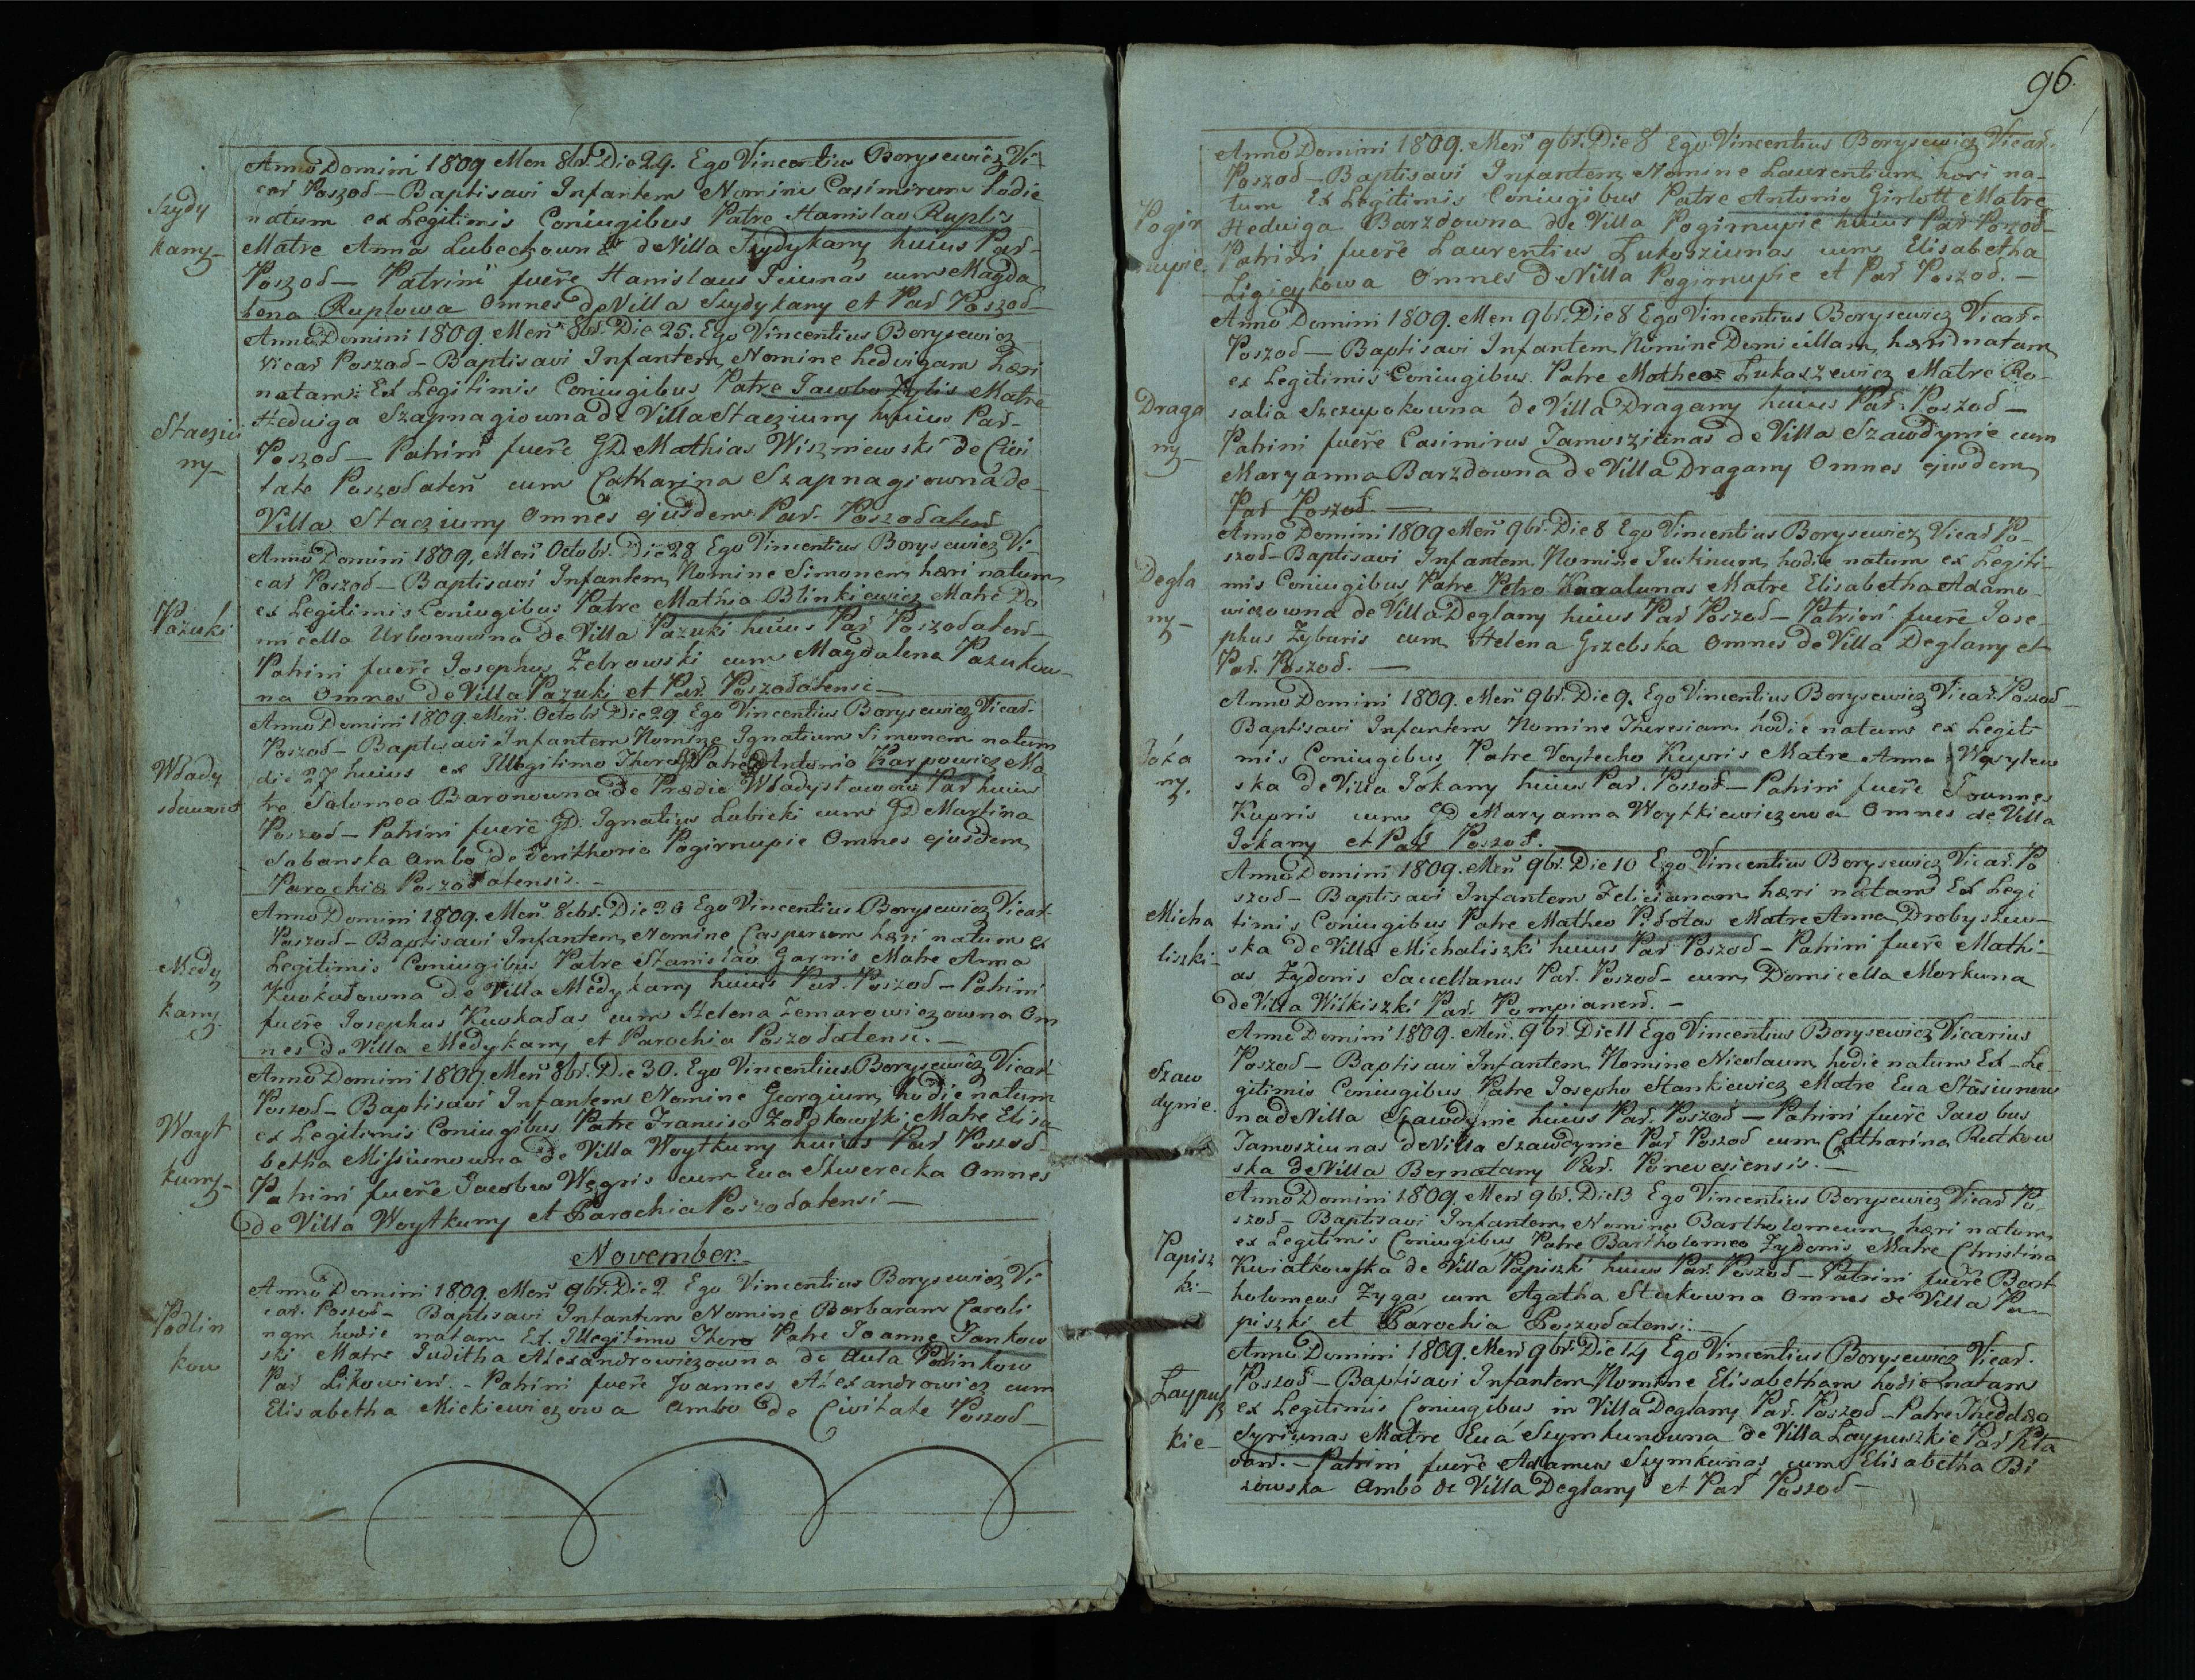 Szydy
kany
Anno Domini 1809 Men 8br. Die 24. Ego Vincentius Borysewicz Vi-
car Poszod – Baptisavi Infantem Nomine Casimirum hodie
natum ex Legitimis Coniugibus Patre Stanislao Ruplis
Matre Anna Lubeckowna de Villa Szydykany huius Par-
Poszod – Patrini fuere Stanislaus cum Magda
lena Ruplowa Omnes de Villa Szydykany et Par Poszod
Staeziu
ny
Anno Domini 1809. Men 8br. Die 25. Ego Vincentius Borysewicz
Vicar Poszod – Baptisavi Infantem Nomine Hedvigam hæri
natam Ex Legitimis Coniugibus Patre Jacobo Zylis Matre
Heduiga Szapnagiowna de Villa Staeziuny huius Par-
Poszod – Patrini fuere GD Mathias Wiszniewski de Civi
tate Poszodaten cum Catharina Szapnagiowna de
Villa Staeziuny Omnes ejusdem Par. Poszodaten
Pazuki
Anno Domini 1809. Men Octobr. Die 28 Ego Vincentius Borysewicz Vi-
car Poszod – Baptisavi Infantem Nomine Simonem hæri natum
ex Legitimis Coniugibus Patre Mathia Blinkiewicz Matre Do
micella Urbonowna de Villa Pazuki huius Par Poszodaten
Patrini fuere Josephus Zebrowski cum Magdalena Pazukow-
na Omnes de Villa Pazuki et Par. Poszodatensi –
Wlady
slauwow
Anno Domini 1809. Men. Octobr Die 29 Ego Vincentius Borysewicz Vicar.
Poszod – Baptisavi Infantem Nomine Ignatium Simonem natum
die 27 huius ex Illegitimo Thoro Patre Antonio Karpowicz Ma
tre Salomea Baronowna de Prædio Władysławow Par huius
Poszod – Patrini fuere GD. Ignatius Lubicki cum GD Martina
Sobanska Ambo de Terithorio Pogirnupie Omnes ejusdem
Parochiæ Poszodatensis. –
Medy
kany
Anno Domini 1809. Men. 8br. Die 30 Ego Vincentius Borysewicz Vicar.
Poszod – Baptisavi Infantem Nomine Casperum hæri natum ex
Legitimis Coniugibus Patre Stanislao Garnis Matre Anna
Kuokadowna de Villa Medykany huius Par. Poszod – Patrini
fuere Josephus Kuokadas cum Helena Zemarowiczowna Om
nes de Villa Medykany et Parochia Poszodatensi. –
Woyt
kuny
Anno Domini 1809. Men 8br. Die 30. Ego Vincentius Borysewicz Vicar
Poszod – Baptisavi Infantem Nomine Georgium hodie natum
ex Legitimis Coniugibus Patre Francisco Matre Elisa
betha Missiunowna de Villa Woytkuny huius Par Poszod
Patrini fuere Jacobus Węgris cum Eva Skwerecka Omnes
de Villa Woytkuny et Parochia Poszodatensi –
November.
Podlin
kow
Anno Domini 1809. Men 9br. Die 2 Ego Vincentius Borysewicz Vi
car. Poszod – Baptisavi Infantem Nomine Barbaram Caroli
nam hodie natam Ex Illegitimo Thoro Patre Joanne Jankow
ski Matre Juditha Alexandrowiczowna de Aula Podlinkow
Par Likowien. – Patrini fuere Joannes Alexandrowicz cum
Elisabetha Mickiewiczowa Ambo de Civitate Poszod –
96.
Pogir
nupie
Anno Domini 1809. Men 9br. Die 8 Ego Vincentius Borysewicz Vicar.
Poszod – Baptisavi Infantem Nomine Laurentium hæri na-
tum Ex Legitimis Coniugibus Patre Antonio Girlott Matre
Heduiga Barzdowna de Villa Pogirnupie huius Par Poszod –
Patrini fuere Laurentius Lukosziunas cum Elisabetha
Ligieykowa Omnes de Villa Pogirnupie et Par Poszod. –
Draga
ny
Anno Domini 1809. Men 9br. Die 8 Ego Vincentius Borysewicz Vicar.
Poszod – Baptisavi Infantem Nomine Domicillam hæri natam
ex Legitimis Coniugibus Patre Matheo Lukaszewicz Matre Ro-
salia Szczupokowna de Villa Dragany huius Par. Poszod –
Patrini fuere Casimirus Jamosziunas de Villa Szawdynie cum
Maryanna Barzdowna de Villa Dragany Omnes ejusdem
Par Poszod. –
Degla
ny
Anno Domini 1809 Men 9br. Die 8 Ego Vincentius Borysewicz Vicar Po-
szod – Baptisavi Infantem Nomine Justinum hodie natum ex Legiti-
mis Coniugibus Patre Petro Karalunas Matre Elisabetha Adamo-
wiczowna de Villa Deglany huius Par Poszod – Patrini fuere Jose-
phus Zyburis cum Helena Grzebska Omnes de Villa Deglany et
Par. Poszod. –
Joka
ny.
Anno Domini 1809. Men 9br. Die 9. Ego Vincentius Borysewicz Vicar. Poszod –
Baptisavi Infantem Nomine Theresiam hodie natam ex Legiti
mis Coniugibus Patre Voytecho Kupris Matre Anna Wasylew
ska de Villa Jokany huius Par. Poszod – Patrini fuere Joannes
Kupris cum GD Maryanna Woytkiewiczowa Omnes de Villa
Jokany et Par Poszod. –
Micha
liszki
Anno Domini 1809. Men 9br. Die 10 Ego Vincentius Borysewicz Vicar. Po
szod – Baptisavi Infantem Felicianam hæri natam Ex Legi
timis Coniugibus Patre Matheo Vidotas Matre Anna Drobyszew-
ska de Villa Michaliszki huius Par Poszod – Patrini fuere Mathi-
as Zydonis Sacellanus Par. Poszod – cum Domicella Morkuna
de Villa Wilkiszki Par. Pompianen. –
Szaw
dynie
Anno Domini 1809. Men. 9br. Die 11 Ego Vincentius Borysewicz Vicarius
Poszod – Baptisavi Infantem Nomine Nicolaum hodie natum Ex Le-
gitimis Coniugibus Patre Josepho Stankiewicz Matre Eva Stasiunow
na de Villa Szawdynie huius Par. Poszod – Patrini fuere Jacobus
Jamosziunas de Villa Szawdynie Par Poszod cum Catharina Rutkow
ska de Villa Bernatany Par. Ponevesiensis. –
Papisz
ki
Anno Domini 1809. Men 9br. Die 13 Ego Vincentius Borysewicz Vicar Po-
szod – Baptisavi Infantem Nomine Bartholomeum hæri natum
ex Legitimis Coniugibus Patre Bartholomeo Zydonis Matre Christina
Kwiatkowska de Villa Papiszki huius Par. Poszod – Patrini fuere Bart
holomeus Zygas cum Agatha Stukowna Omnes de Villa Pa-
piszki et Parochia Poszodatensi. –
Laypusz
kie
Anno Domini 1809. Men 9br. Die 14 Ego Vincentius Borysewicz Vicar.
Poszod – Baptisavi Infantem Nomine Elisabetham hodie natam
ex Legitimis Coniugibus in Villa Deglany Par. Poszod – Patre Theddæo
Syriunas Matre Eva Szymkunowna de Villa Laypuszkie Par Kra
van. – Patrini fuere Adamus Szymkunas cum Elisabetha Bi
zowska Ambo de Villa Deglany et Par Poszod –